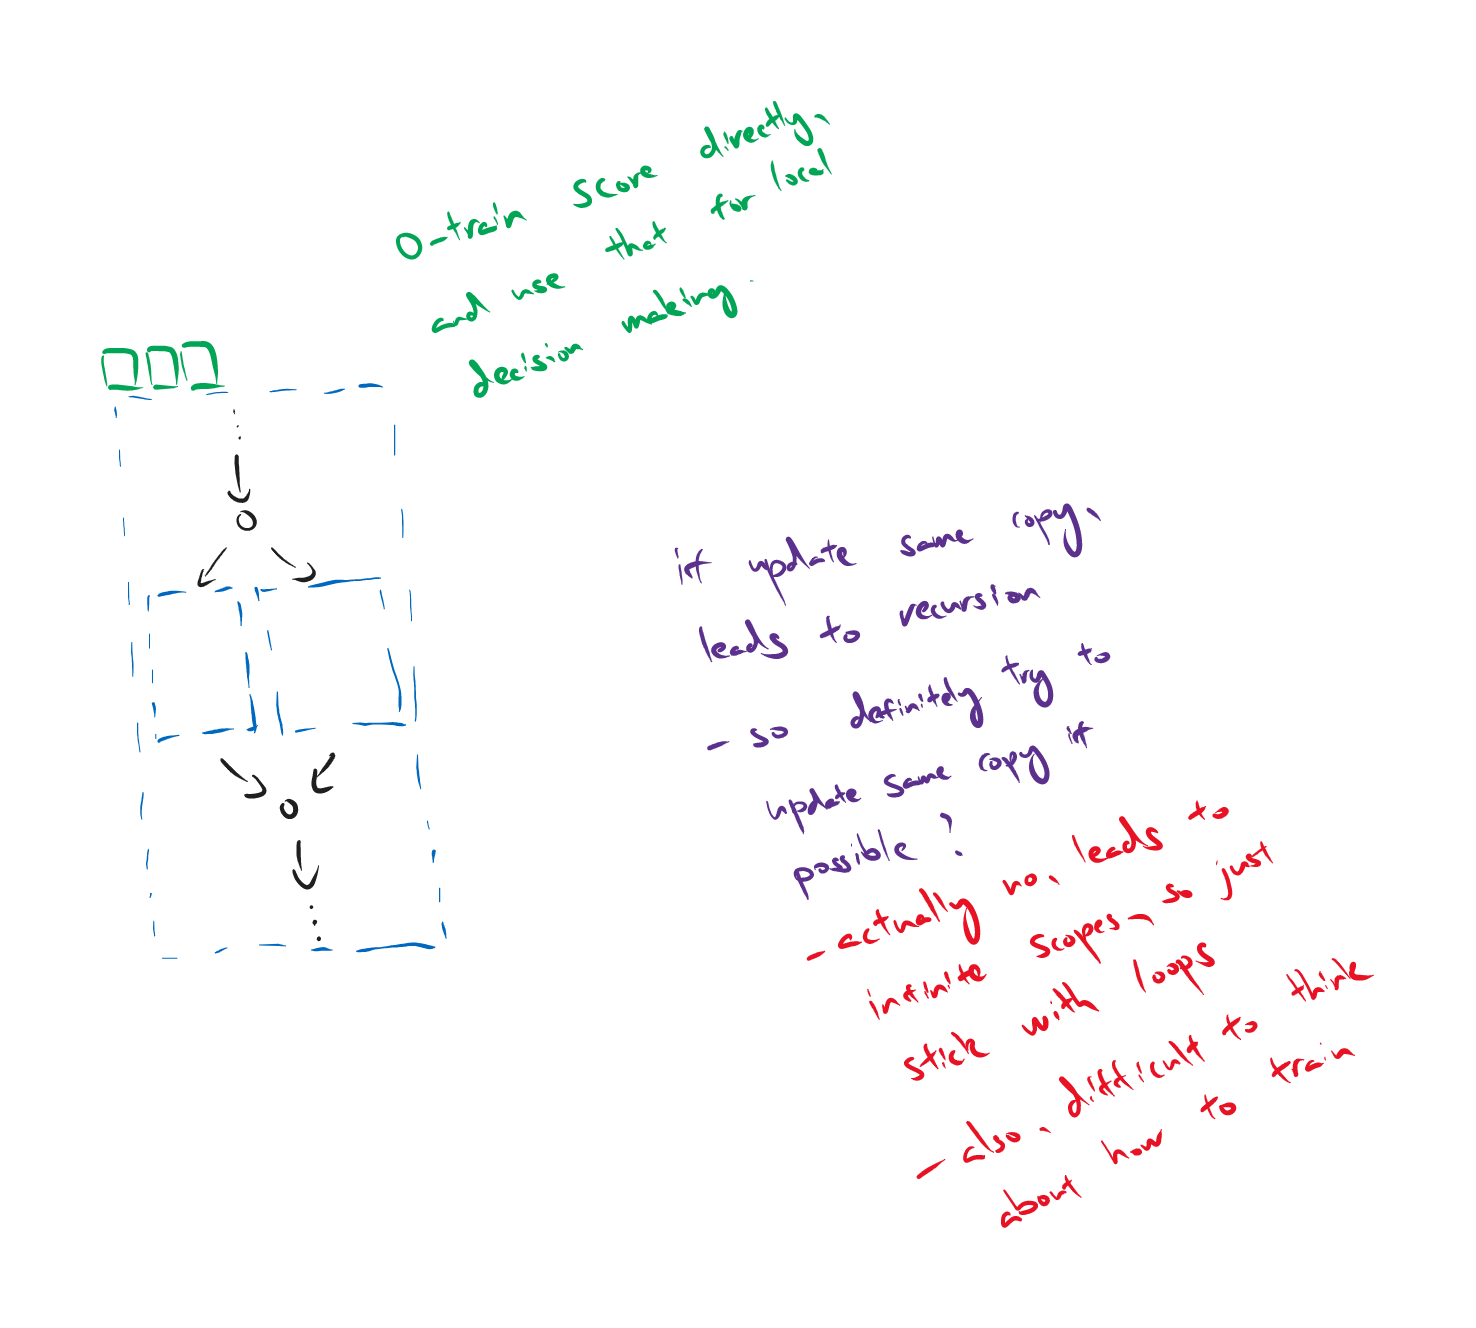 0-train score directly,
and use that for local
decision making.
if update same copy,
leads to recursion
- so definitely try to
update same copy if
possible?
- actually no, leads to
infinite scopes, so just
stick with loops
- also, difficult to think
about how to train